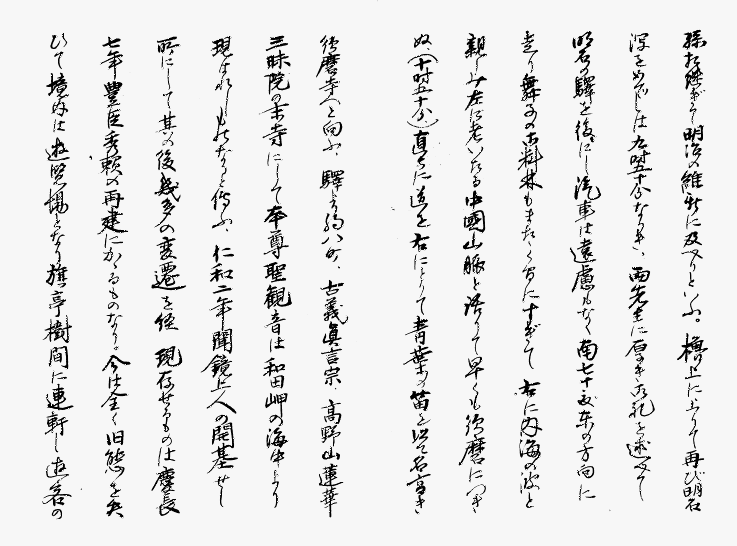 孫相継ぎて明治の維新に及べりといふ。櫓上に上りて再び明石
深をめでしは九時五十分なりき、両先生に厚き御礼を述べて
明石の驛を後にし汽車は遠慮もなく南七十度東の方向に
走り舞子の御料林もまたゝく間にすぎて右に内海の波と
親しみ左に老いたる中國山脈と語りて早くも須磨につき
ぬ、(十時五十分)直ちに道を右にとりて青葉の笛を以て名高き
須磨寺へと向ふ、驛より約八町、古義真言宗、高野山蓮華
三昧院の末寺にして本尊聖観音は和田岬の海中より
現はれしものなりと傳ふ、仁和二年聞鏡上人の開基せし
所にして其の後幾多の変遷を経 現存せるものは慶長
七年豊臣秀頼の再建にかゝるものなり。今は全く旧態を失
ひて境内は遊覧場となり旗亭樹間に連軒し遊客の